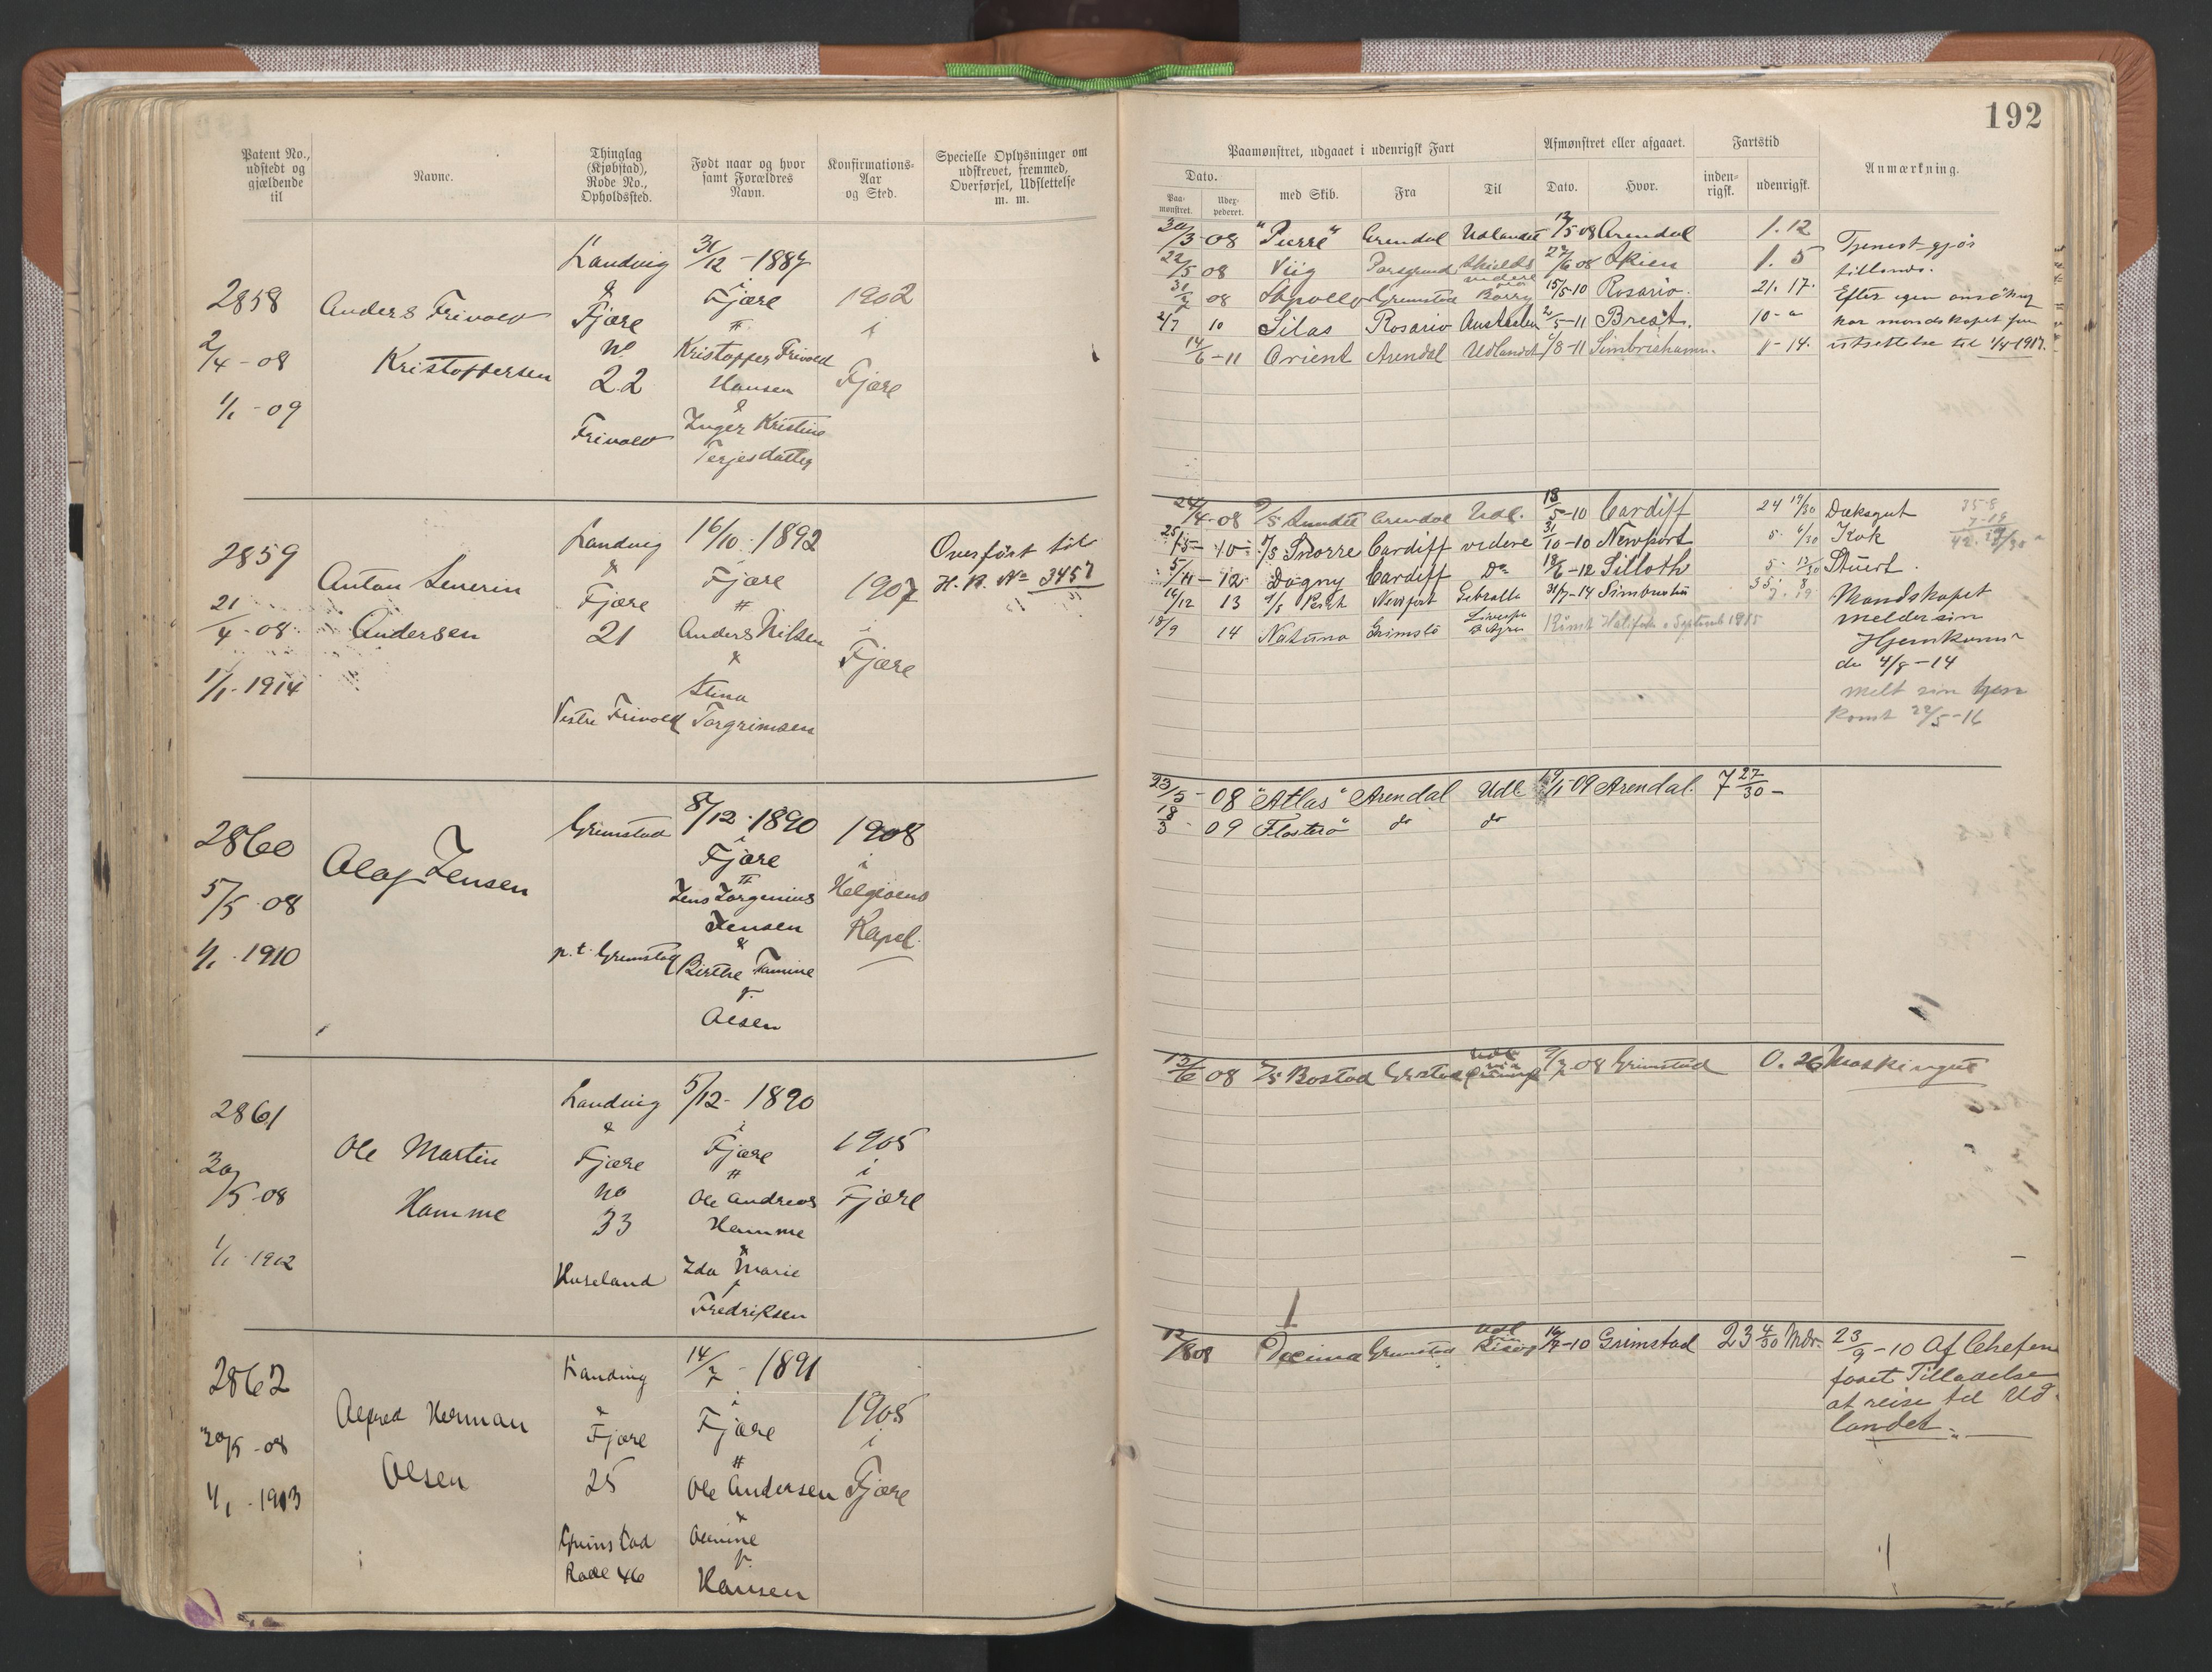 192
Patent No., udstedt og gjældende til
Navne.
Thinglag (Kjøbstad), Rode No., Opholdssted.
Født naar og hvor samt Forældres Navn.
Konfirmations-Aar og Sted.
Specielle Oplysninger om udskrevet, fremmed, Overførsel, Udslettelse m. m.
Paamønstret, udgaaet i udenrigsk Fart
Afmønstret eller afgaaet.
Fartstid
Anmærkning.
Dato.
Paa-mønstret.
Udex-pederet.
med Skib.
Fra
Til
Dato.
Hvor.
inden-rigsk.
udenrigsk.
2858
2/4 - 08
1/1 - 09
Anders Frivold
Kristoffersen
Landvig
&
Fjære
No
22
Frivold
31/12 - 1887
i
Fjære
Kristoffer Frivold
Hansen
&
Inger Kristine
Terjesdatter
1902
i
Fjære
30/3 - 08 "Pierre" Arendal Udlandet 13/5 08 Arendal 1. 12
22/5 08 Viig Porsgrund Skields 27/6 08 Skien 1. 5
31/7 08 Apollo Grimstad Barry 15/5-10 Rosario. 21. 17.
2/7 10 Silas Rosario Australien 2/5-11 Brest.
14/6 - 11 Orient Arendal Udlandet /8-11 Simbrishamn. 1 - 14.
Tjenest gjør
tillands.
Efter egen ansökng
har mandskapet faa
utsettelse til 1/4-1917.
2859
21/4 - 08
1/1 - 1914
Anton Severin
Andersen
Landvig
&
Fjære
21
Vestre Frivold
16/10 - 1892
i
Fjære
Anders Nilsen
&
Stina
Torgrimsen
1907
i
Fjære
Overført til
H. R. No 3457
24/4-08 Arendal Udl. 18/5-10 Cardiff 24 19/30 Dæksgut
25/5 - 10 S/S Snorre Cardiff videre 31/10-10 Newport 5. 6/30 Kok
5/11 - 12 Dagny Cardiff Do 18/6-12 Silloth Stuert.
16/12 13 Newport Gibralta 31/7-14
18/9 14 Natuna Grimstö Römt Halifax September 1915
Mandskapet
melder sin
Hjemkomst
de 4/8-14
melt sin hjem
komst 22/5-16
2860
5/5 - 08
1/1 - 1910
Olaf Jensen
Grimstad
p.t. Grimstad
8/12 - 1890
i
Fjære
Jens Jørgenius
Jensen
&
Birthe Tomine
f.
Olsen
1908
i
Helgøens
Kapel.
23/5 - 08 "Atlas" Arendal Udl 19/1-09 Arendal. 7 27/30 -
18/3 - 09 Flosterø do do
2861
30/5 - 08
1/1 - 1912
Ole Martin
Hamme
Landvig
&
Fjære
No
33
Huseland
5/12 - 1890
i
Fjære
Ole Andreas
Hamme
&
Ida Marie
f
Fredriksen
1905
i
Fjære
13/6 08 S/S Bostad Grstad 9/7-08 Grimstad 0. 26 Maskingut
2862
30/5 - 08
1/1 - 1913
Alfred Herman
Olsen
Landvig
&
Fjære
25
Grimstad
Rode 46
14/7 - 1891
i
Fjære
Ole Andersen
&
Olmine
f.
Hansen
1905
i
Fjære
12/8 08 Decima Grimstad Udl via Risør 16/7-10 Grimstad 23 4/30 Mdr.
23/9 - 10 Af Chefen
faaet Tilladelse
at reise til Ud-
landet.